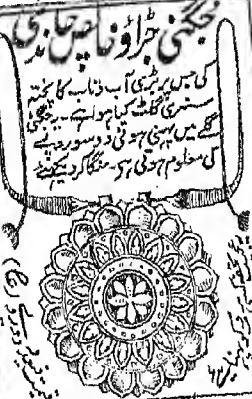 جگنی جڑاؤ خالص چاندی
کی جس پر بڑی آب و تاب کا پختہ
سنہری گلٹ کیا ہوا ہے یہ جگنی
گلے میں پہنی ہوئی دو سو روپے
کی معلوم ہوتی ہے منگا کر دیکھئے
قیمت دو روپے